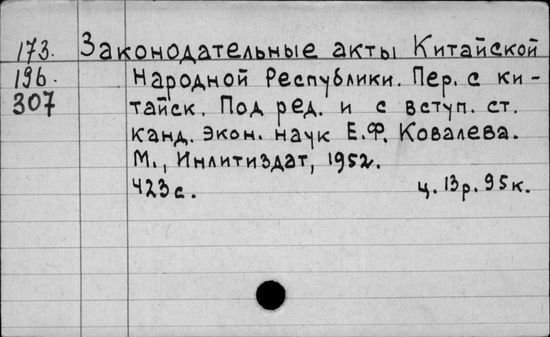 173. Законодательные акты Китайской
196. Народной Республики. Пер. с ки-
307 тайск. Под ред. и с вступ. ст.
канд. экон. наук Е.Ф. Ковалева.
М., Инлитиздат, 1952.
423 с. ц. 13 р. 95 к.